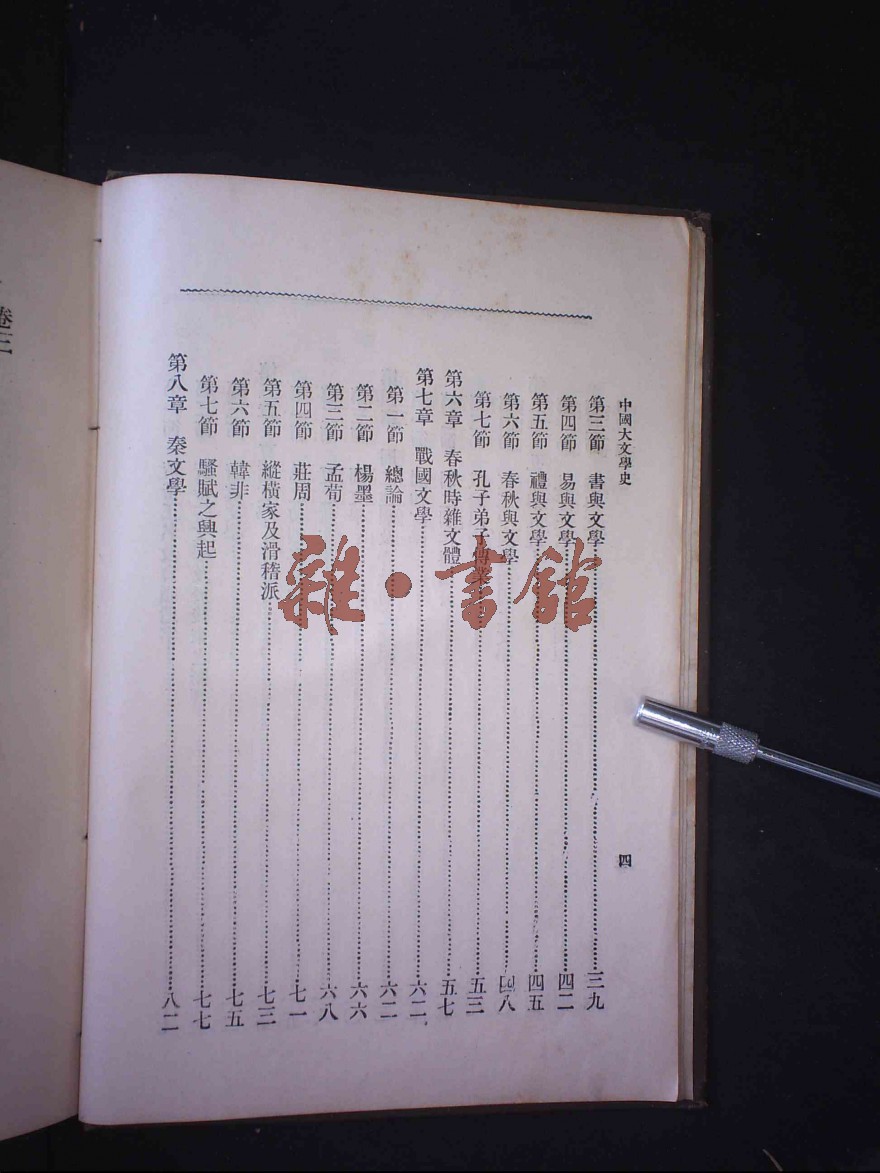 中國大文學史
四
第三節 書與文學 三九
第四節 易與文學 四二
第五節 禮與文學 四五
第六節 春秋與文學 四八
第七節 孔子弟子傳業 五三
第六章 春秋時雜文體 五七
第七章 戰國文學 六二
第一節 總論 六二
第二節 楊墨 六六
第三節 孟荀 六八
第四節 莊周 七一
第五節 縱橫家及滑稽派 七三
第六節 韓非 七五
第七節 騷賦之興起 七七
第八章 秦文學 八二
卷三
雜·書館